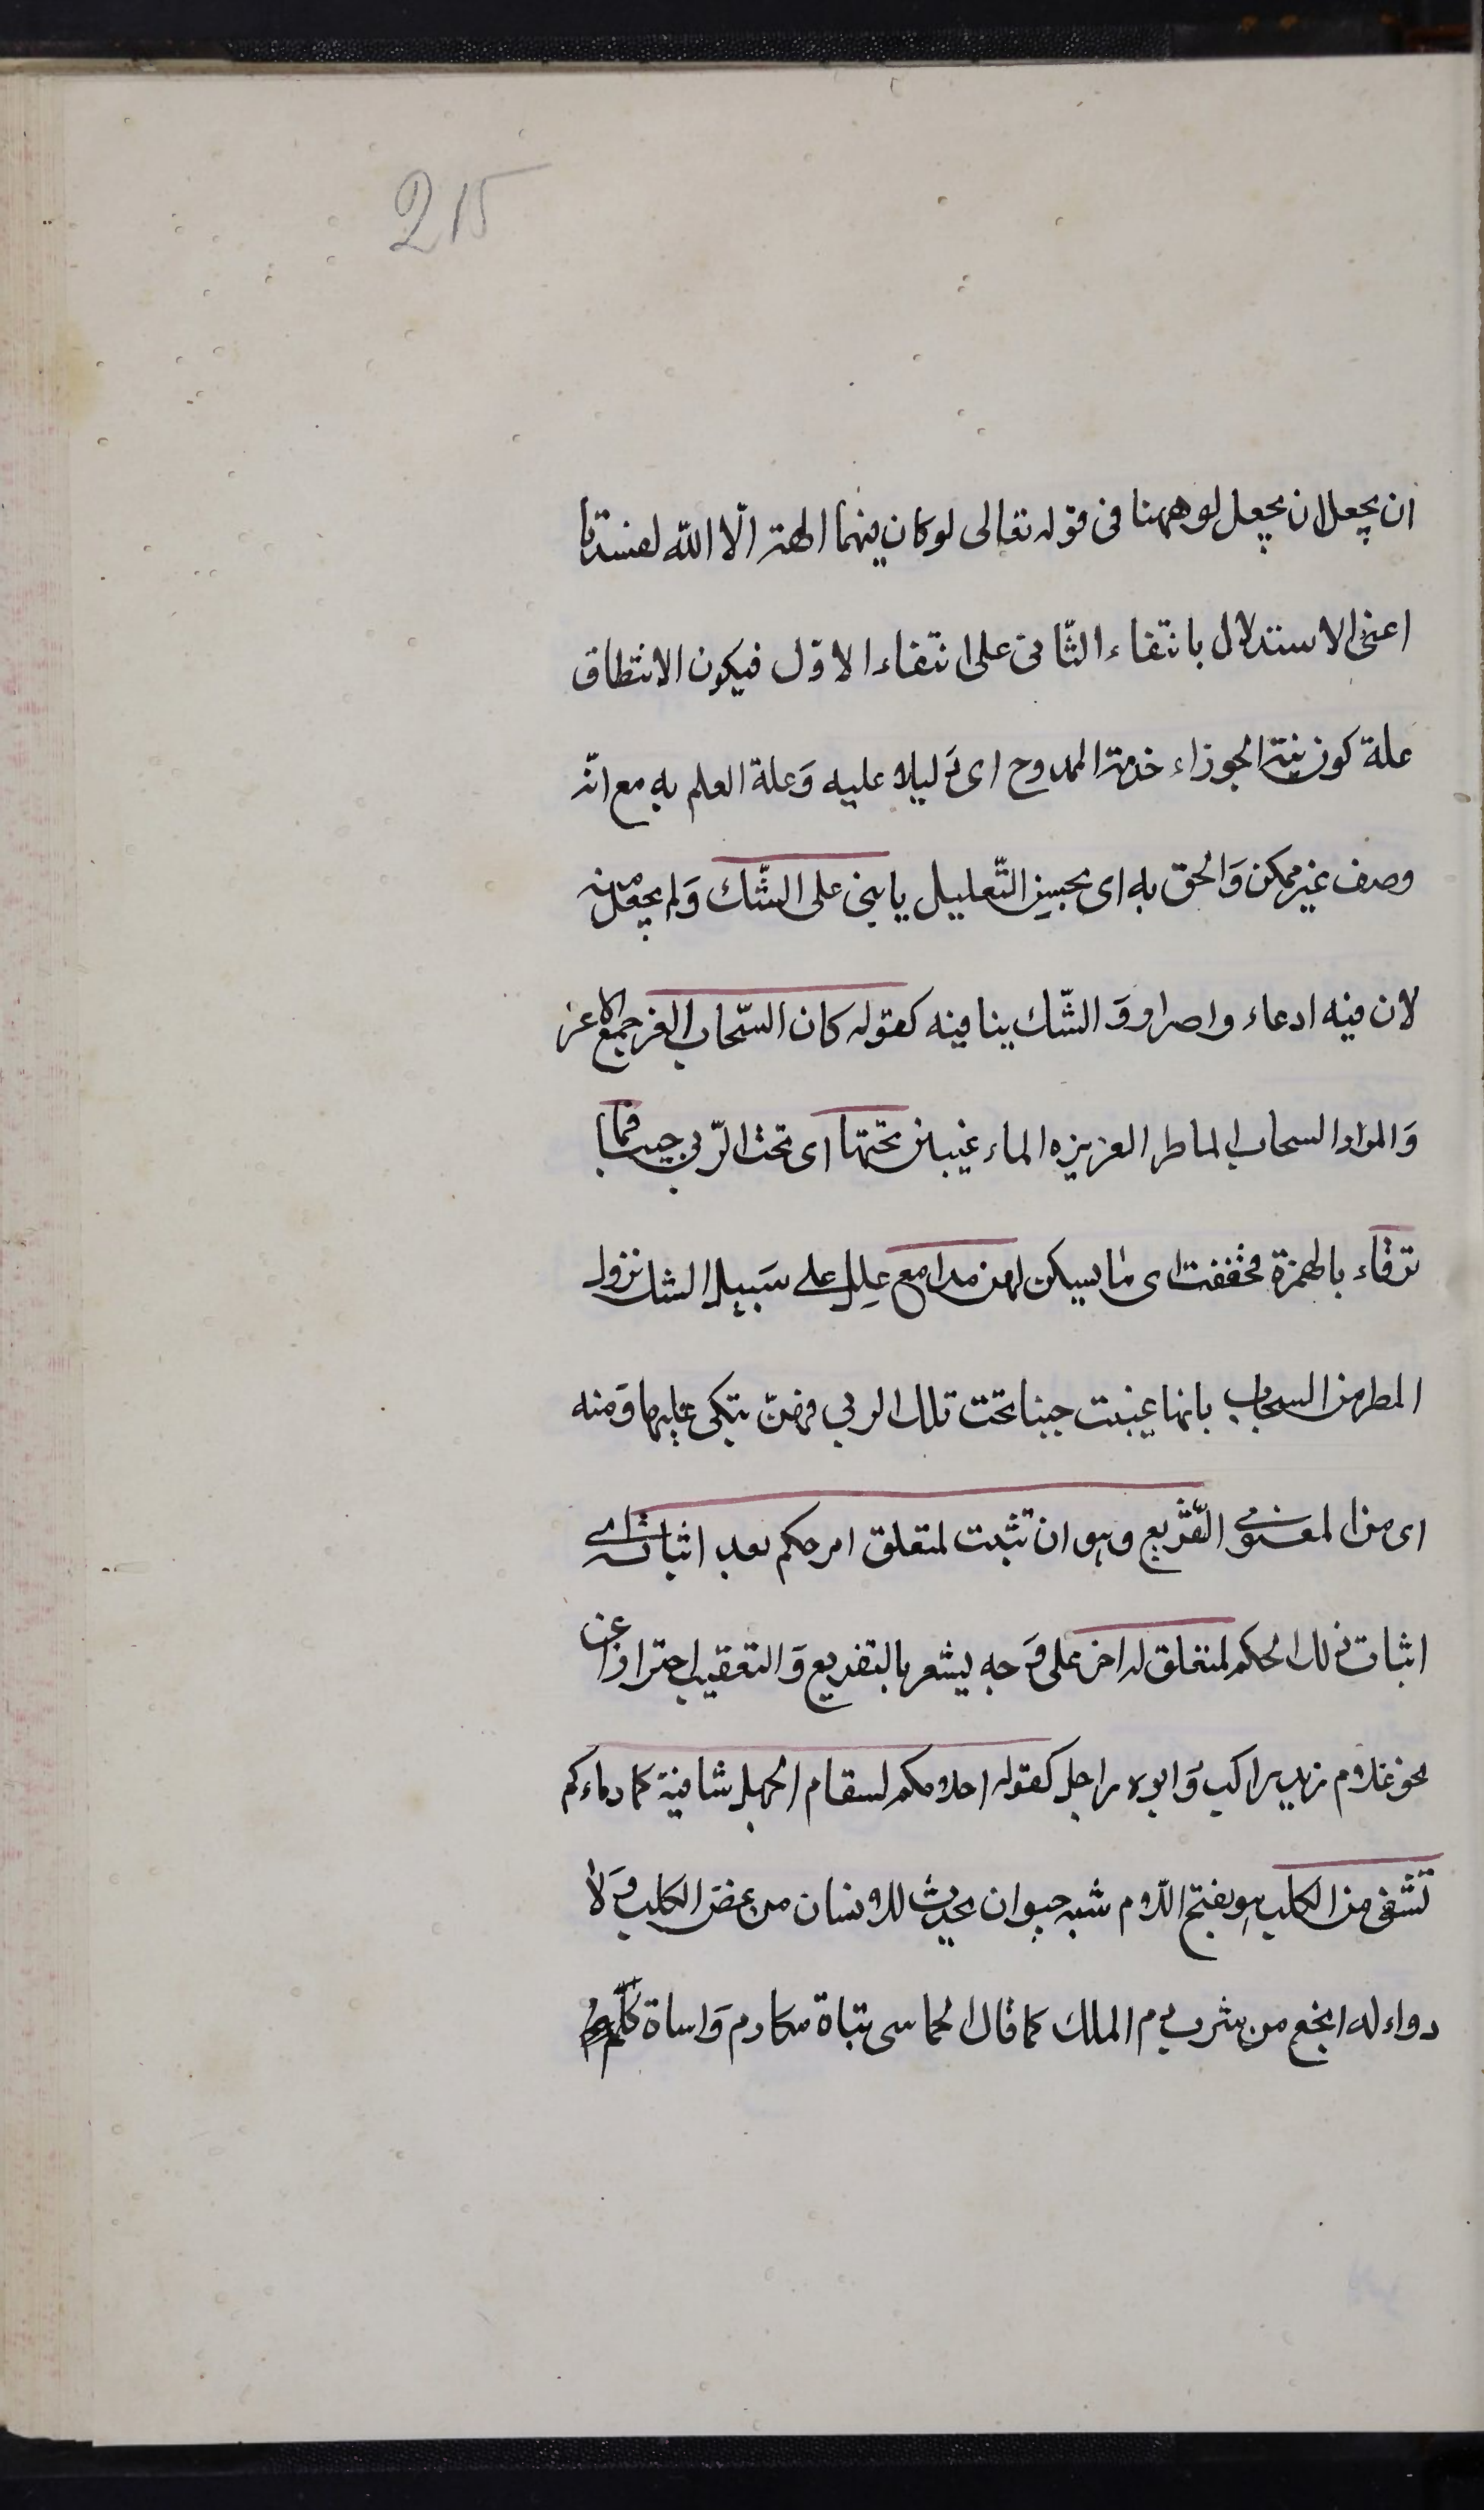 215
ان يجعل ان يجعل لو ههنا فى قوله تعالى لو كان فيهما الهة الّا الله لفسدتا
اعنى الاستدلال بانتفاء الثّانى على انتفاء الاوّل فيكون الانتطاق
علة كون نية الجوزاء خدمة الممدوح اى دليلا عليه وَعلة العلم به مع انّه
وصف غير ممكن وَالحق به اى بحسن التّعليل يا بنى على الشّك وَلم يجعل منه
لان فيه ادعاء واصرار وَ الشّك ينافيه كقوله كان السّحاب الغر جمع الاغر
وَالمراد السحاب الماطر الغزيزه الماء غيبن تحتها اى تحت الرّبى حبيبا فما
ترقاء بالهمزة فخففت اى ما يسكن لهن مدامع علل على سَبيل الشك نزول
المطر من السحاب بانها غيبت حبيبا تحت تلك الربى فهىّ تبكى عليها وَمنه
اى من المعنوى التّفريع وهو ان تثبت لمتعلق امر حكم بعد اثباته اى
اثبات ذلك الحكم لمتعلق له اخر على وَجه يشعر بالتفريع وَالتعقيب احترازا عن
نحو غلام زيد راكب وَابوه راجل كقوله احلامكم لسقام الجهل شافية كما دماءكم
تشفى من الكلب هو بفتح اللّام شبه حيوان يحدث للانسان من عضّ الكلب وَلا
دواء له انجع من شرب دم الملك كما قال الحماسى بناة مكارم وَاساة كلم